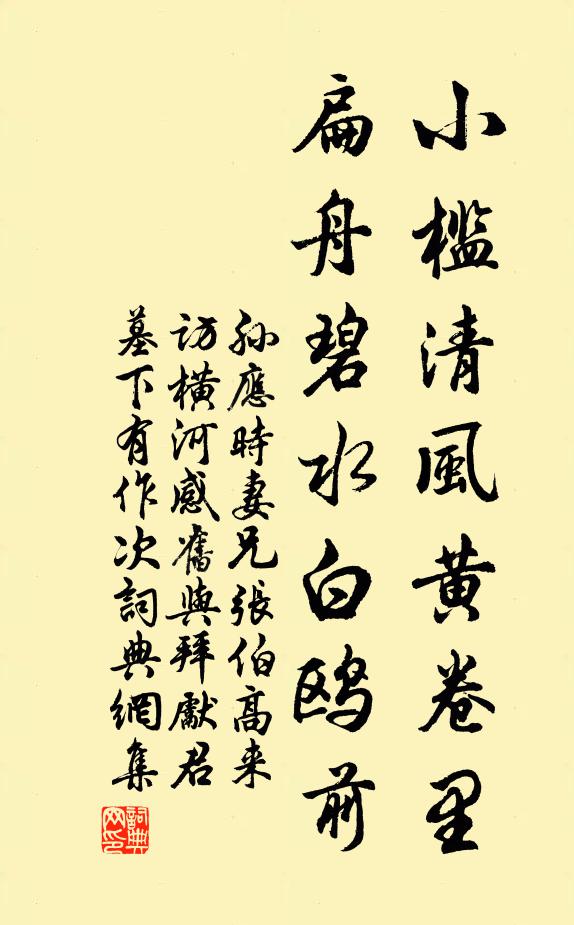 小槛清風黄卷里
扁舟碧水白鸥前
孙應時妻兄張伯高来
访橫河感舊與拜獻君
墓下有作次詞典網集
詞典
网印